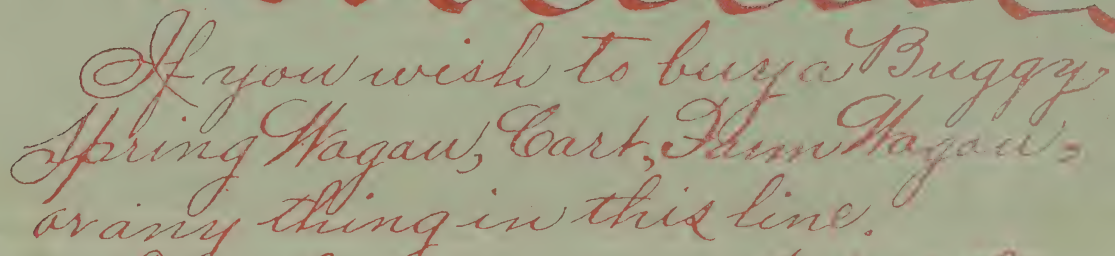 If you wish to buy a Buggy,
Spring Wagon, Cart, Farm Wagon,
or any thing in this line.